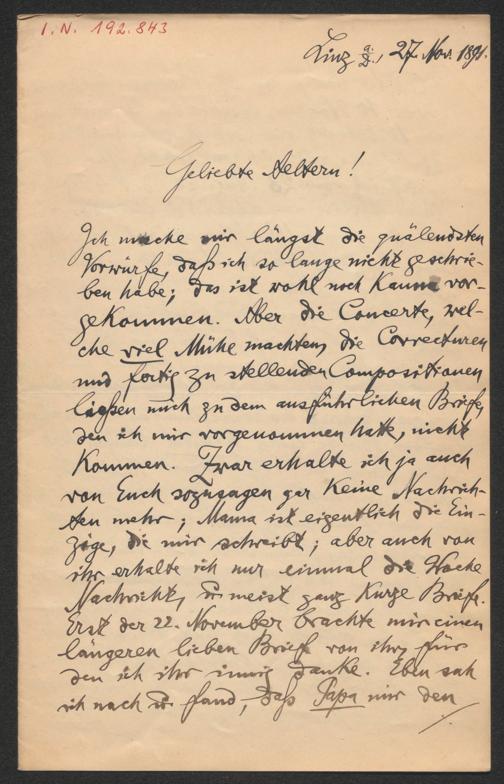 I. N. 192.843
Linz a./D., 27. Nov. 1891.
Geliebte Aeltern!
Ich mache mir längst die quälendsten
Vorwürfe, daß ich so lange nicht geschrie-
ben habe; das ist wohl noch kaum vor-
gekommen. Aber die Concerte, wel-
che viel Mühe machten, die Correcturen
und fertig zu stellenden Compositionen
ließen mich zu dem ausführlichen Briefe,
den ich mir vorgenommen hatte, nicht
kommen. Zwar erhalte ich ja auch
von Euch sozusagen gar keine Nachrich-
ten mehr; Mama ist eigentlich die Ein-
zige, die mir schreibt; aber auch von
ihr erhalte ich nur einmal die Woche
Nachricht, u. meist ganz kurze Briefe.
Erst der 22. November brachte mir einen
längeren lieben Brief von ihr, für
den ich ihr innig danke. Eben sah
ich nach u. fand, daß Papa mir den